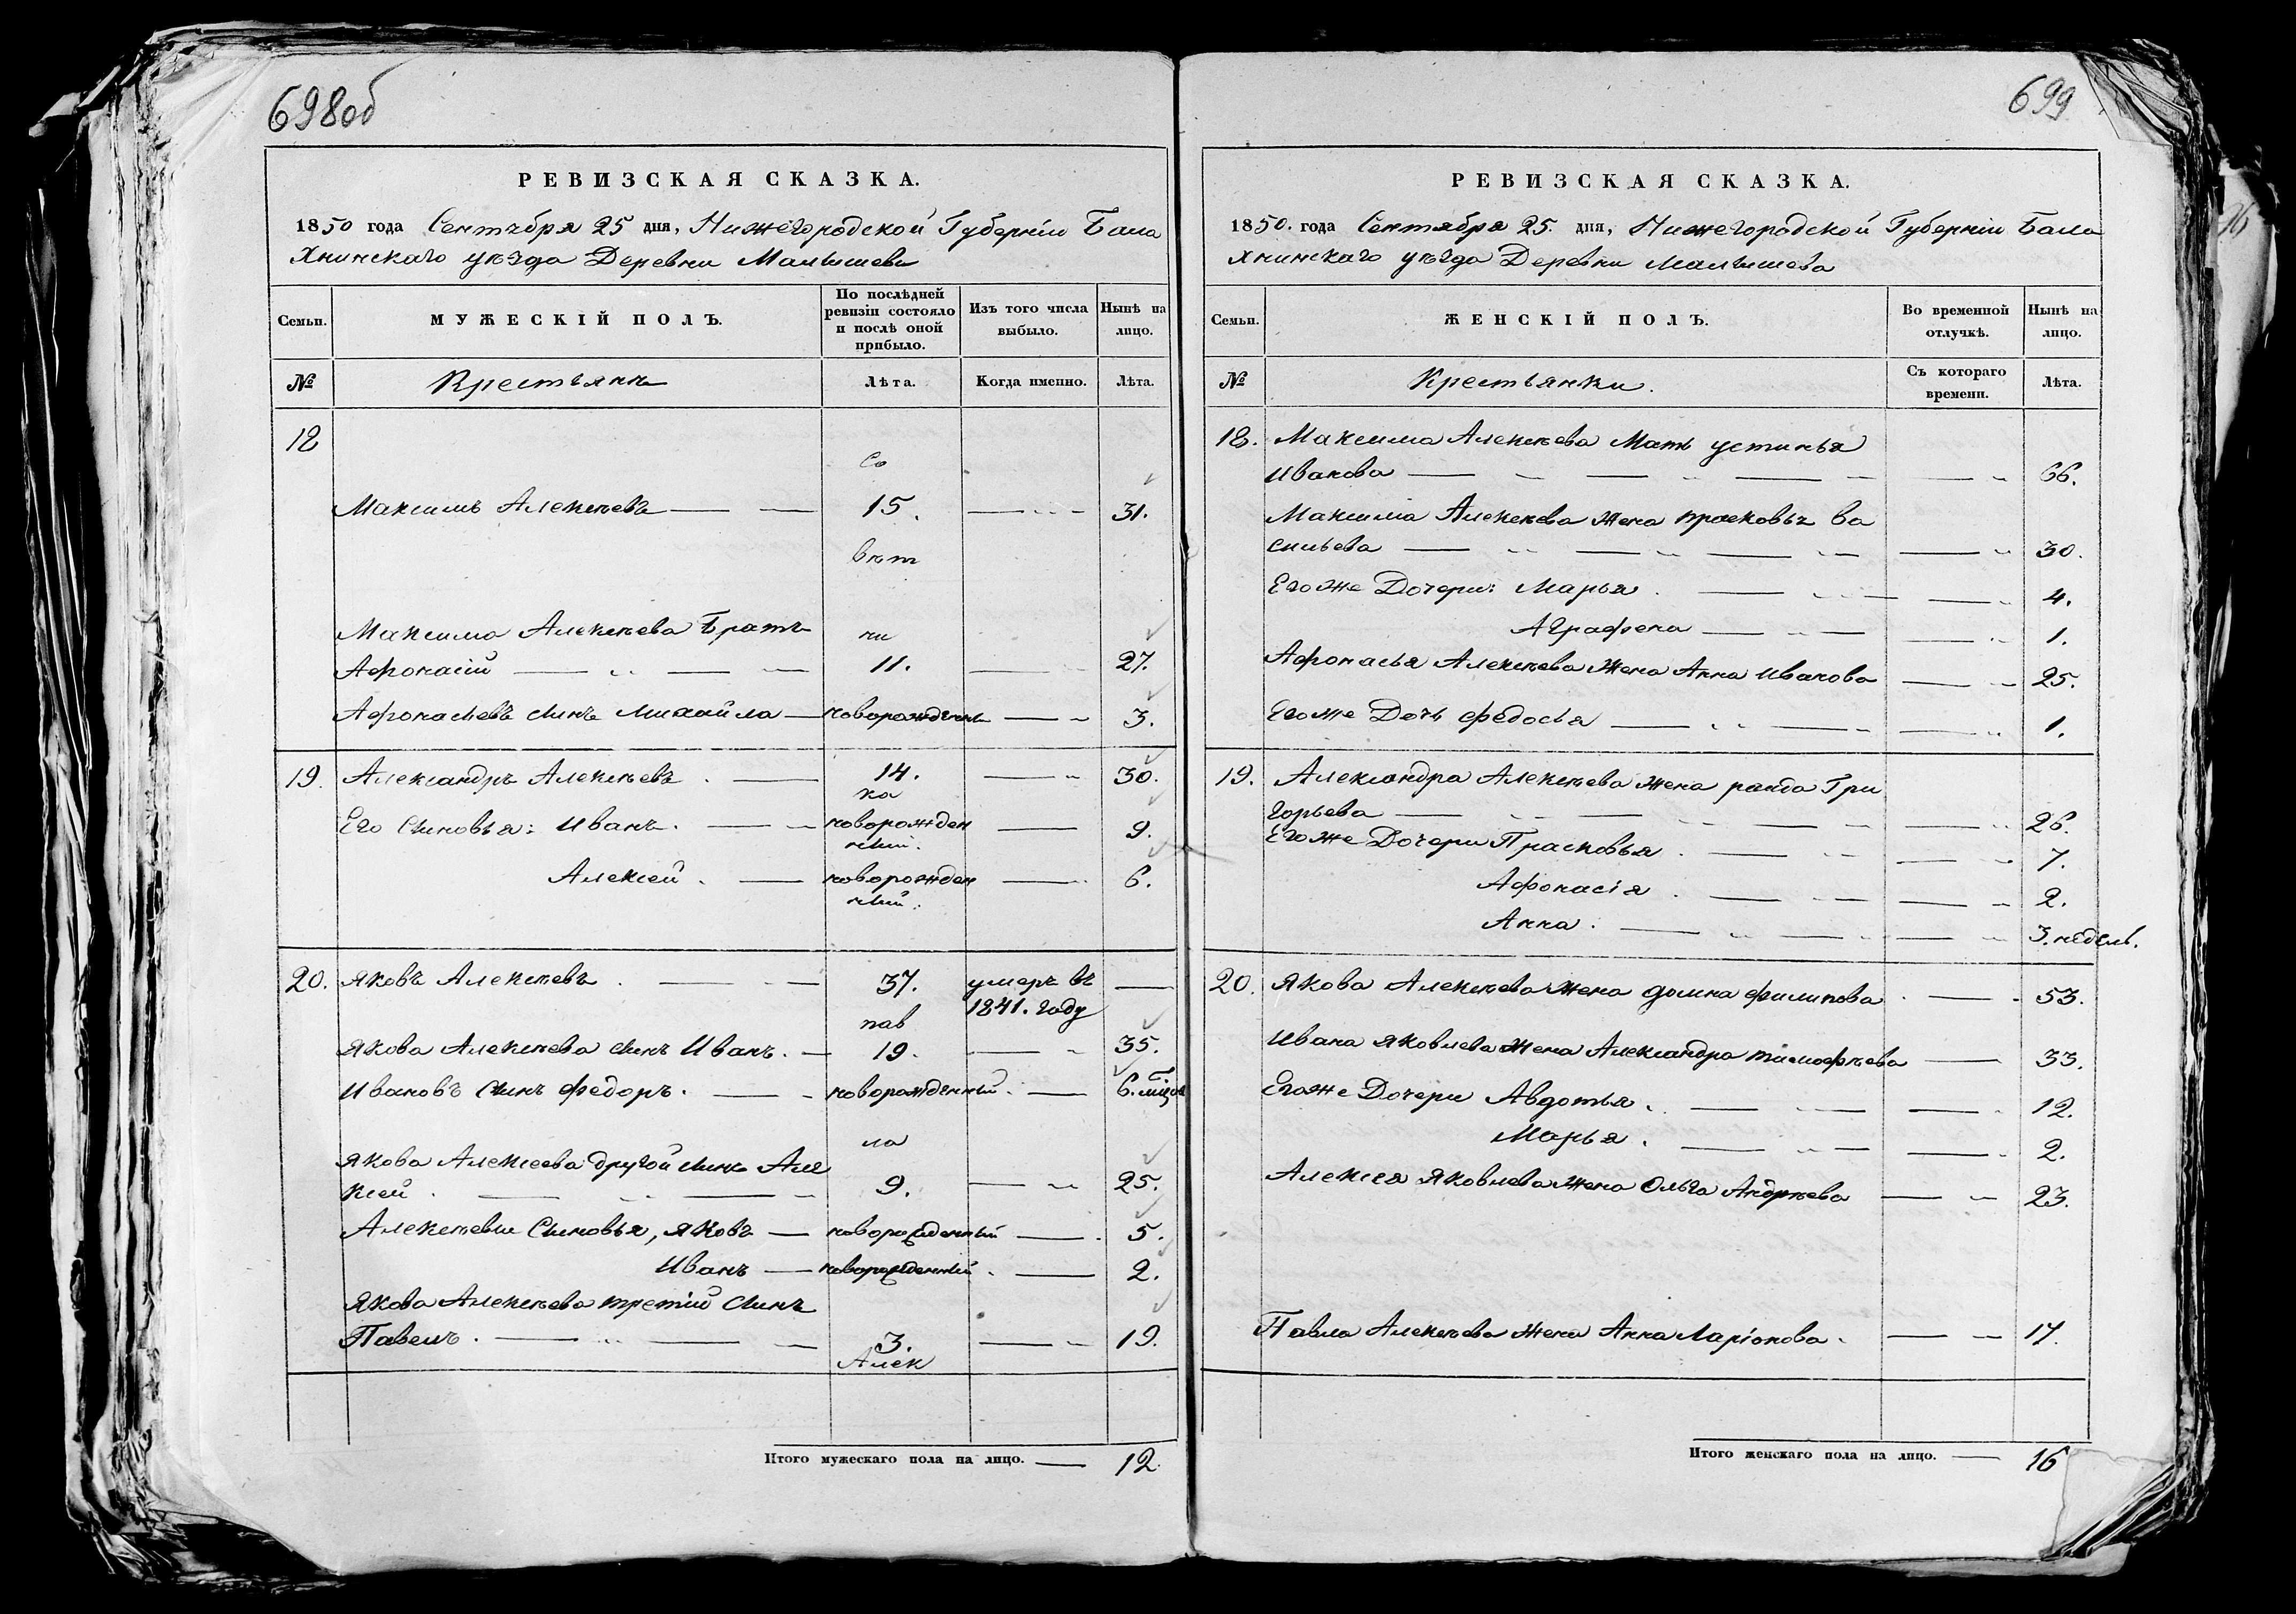 698об
РЕВИЗСКАЯ СКАЗКА.
1850 года Сентября 25 дня, Нижегородской Губерніи Бала
хнинскаго уѣзда Деревни Малышева
Семьи. МУЖЕСКІЙ ПОЛЪ. По послѣдней ревизіи состояло и послѣ оной прибыло. Изъ того числа выбыло. Нынѣ на лицо.
№ Крестьянъ Лѣта. Когда именно. Лѣта.
18
Со
Максимъ Алексѣевъ 15. 31.
вѣт
Максима Алексѣева Братъ ни
Афонасій 11. 27.
Афонасьевъ сынъ Михайла новорожденъ 3.
19. Александръ Алексѣевъ 14. 30.
ка
Его Сыновья: Иванъ. новорожден 9.
ный.
Алексей новорожден 6.
ный.
20. Яковъ Алексѣевъ 37. умеръ въ
1841. году
пав
Якова Алексѣева сынъ Иванъ. 19. 35.
Ивановъ сынъ Федоръ. новорожденный. 6. мѣцов
ла
Якова Алексеева другой сынъ Але
ксей 9. 25.
Алексѣевы Сыновья, Яковъ новорожденный 5.
Иванъ новорожденный 2.
Якова Алексѣева третій сынъ
Павелъ. 3. 19.
Алек
Итого мужескаго пола на лицо. 12.
699
РЕВИЗСКАЯ СКАЗКА.
1850. года Сентября 25. дня, Нижегородской Губерніи Бала
хнинскаго уѣзда Деревни Малышева
Семьи. ЖЕНСКІЙ ПОЛЪ. Во временной отлучкѣ. Нынѣ на лицо.
№ Крестьянки. Съ котораго времени. Лѣта.
18. Максима Алексѣева Мать устинья
Иванова 66.
Максима Алексѣева жена прасковья ва
сильева 30.
Егоже Дочери: Марья 4.
Аграфена 1.
Афонасья Алексѣева жена Анна Иванова 25.
Егоже Дочь федосья 1.
19. Александра Алексѣева жена раида Гри
горьева 26.
Егоже Дочери Прасковья 7.
Афонасія 2.
Анна. 3. недель.
20. Якова Алексѣева жена домна филипова 53.
Ивана Яковлева жена Александра тимофѣева 33.
Егоже Дочери Авдотья. 12.
Марья. 2.
Алексея Яковлева жена Ольга Андрѣева 23.
Павла Алексѣева жена Анна Ларіонова. 17.
Итого женскаго пола на лицо. 16